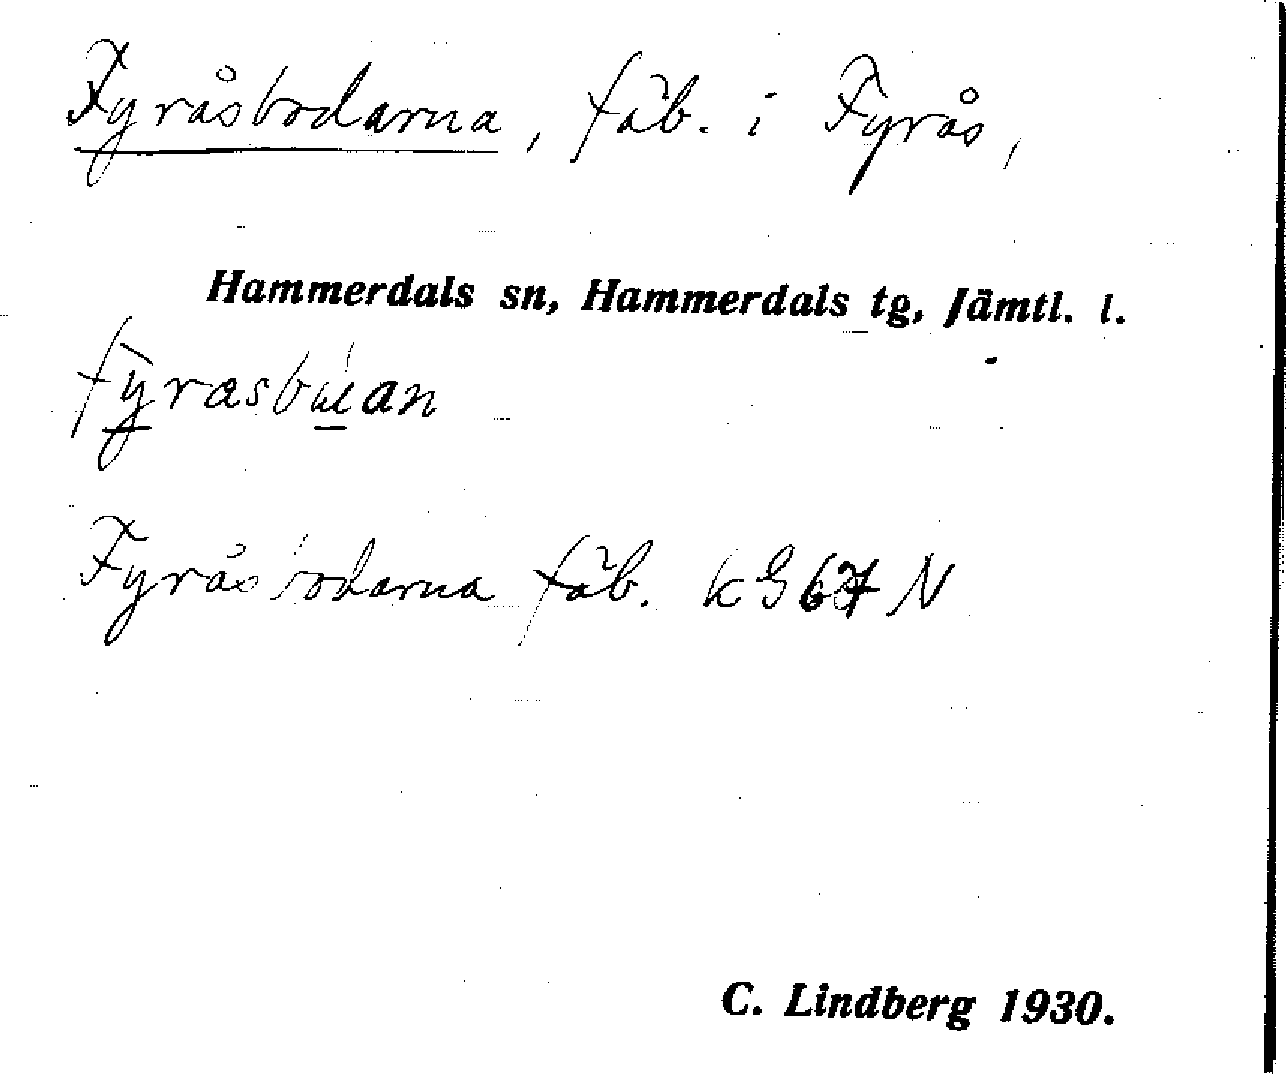 Fyråsbodarna, fäb. i Fyrås,
Hammerdals sn, Hammerdals tg, Jämtl. l.
Fyråsbodarna fäb. kG67 N
C. Lindberg 1930.